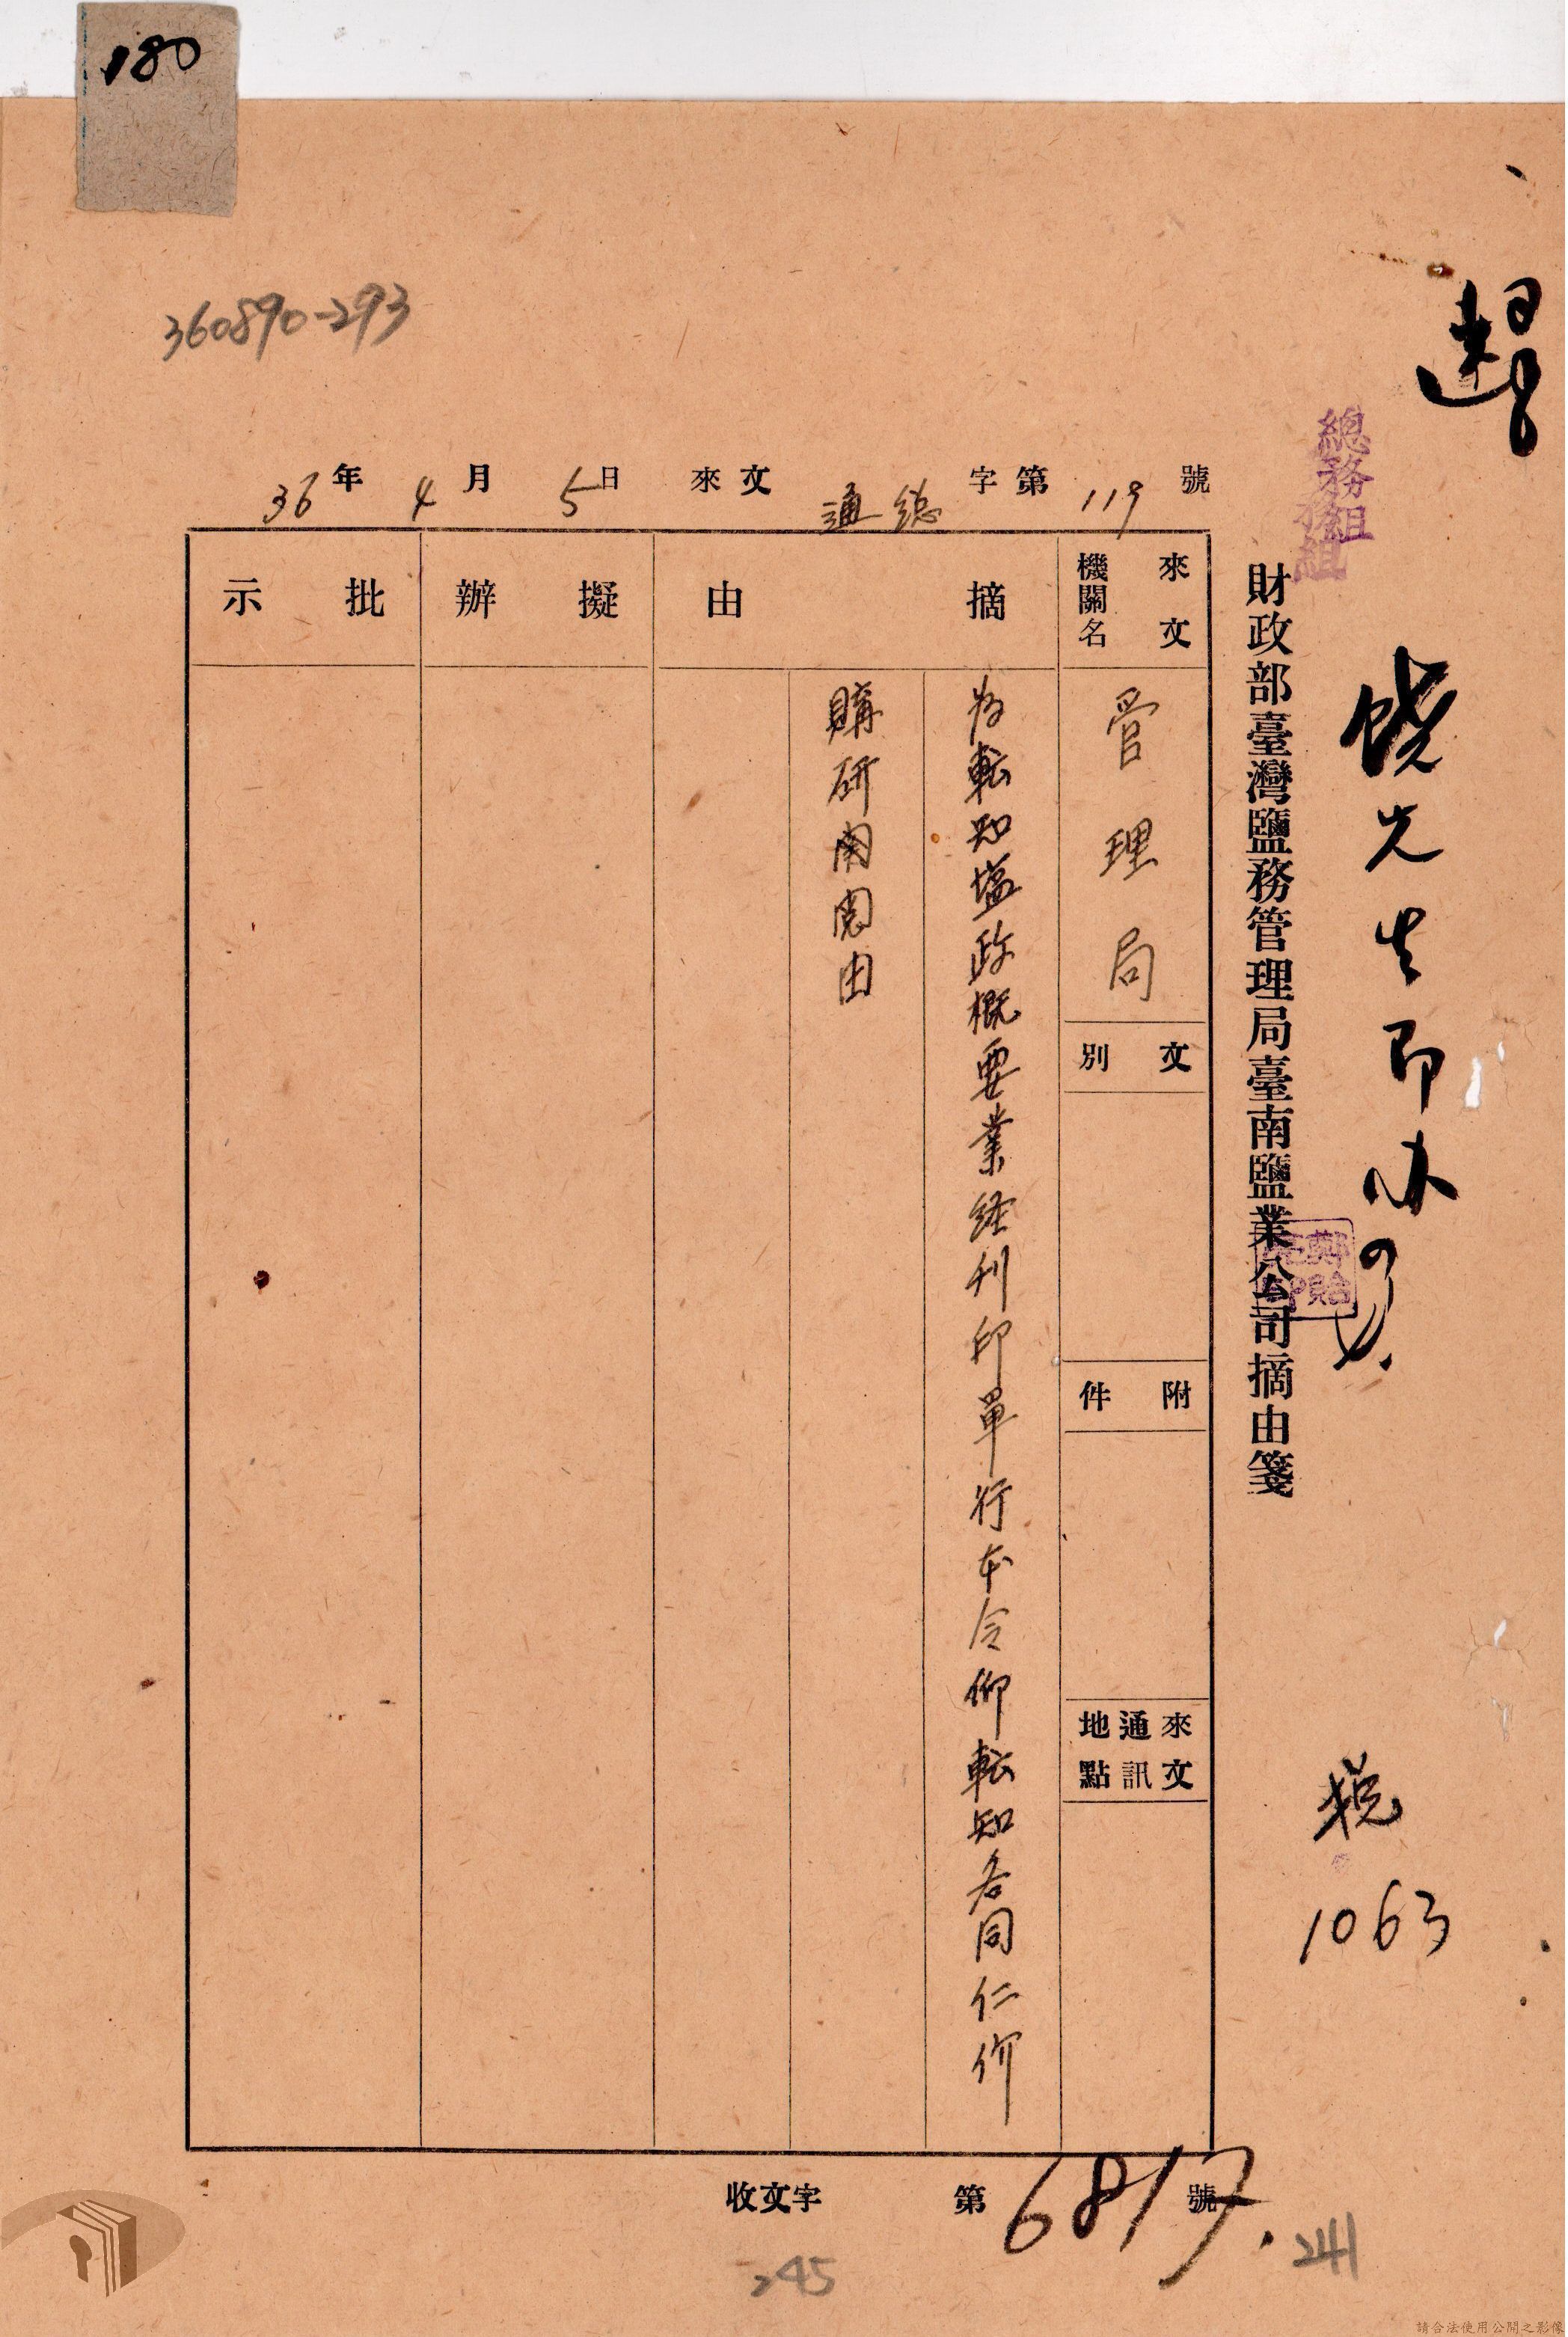 180
360890-293
總務組
總務組
36年4月5日來文通總字第119號
財政部臺灣鹽務管理局臺南鹽業公司摘由箋
饒先生即办
鄭貽
税
1063
來文機關名
管理局
文別
附件
來文通訊地點
摘由
為転知塩政概要業経刊印單行本令仰転知各同仁价
購研閱由
擬辦
批示
收文字第6817號
241
245
請合法使用公開之影像